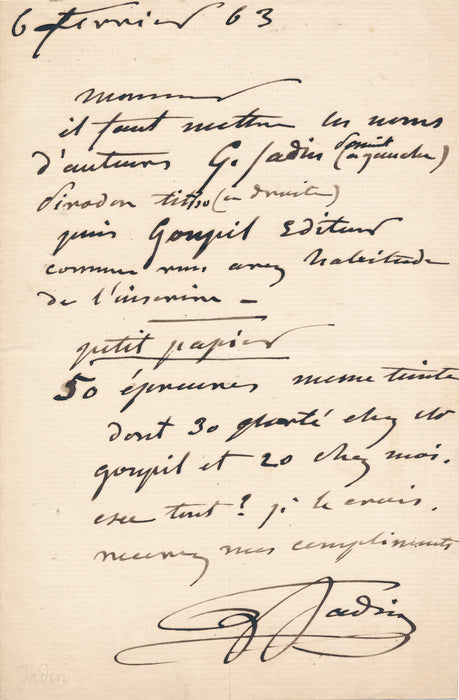 6 fevrier 63
Monsieur
il faut mettre les noms
d'auteurs G. Jadin (à gauche)
(a droite)
puis Goupil Editeur
comme vous avez habitude
de l'inscrire —
petit papier
50 épreuves meme teinte
dont 30 porté chez
goupil et 20 chez moi.
esce tout? je le crois.
recevez mes compliments
G Jadin
Jadin